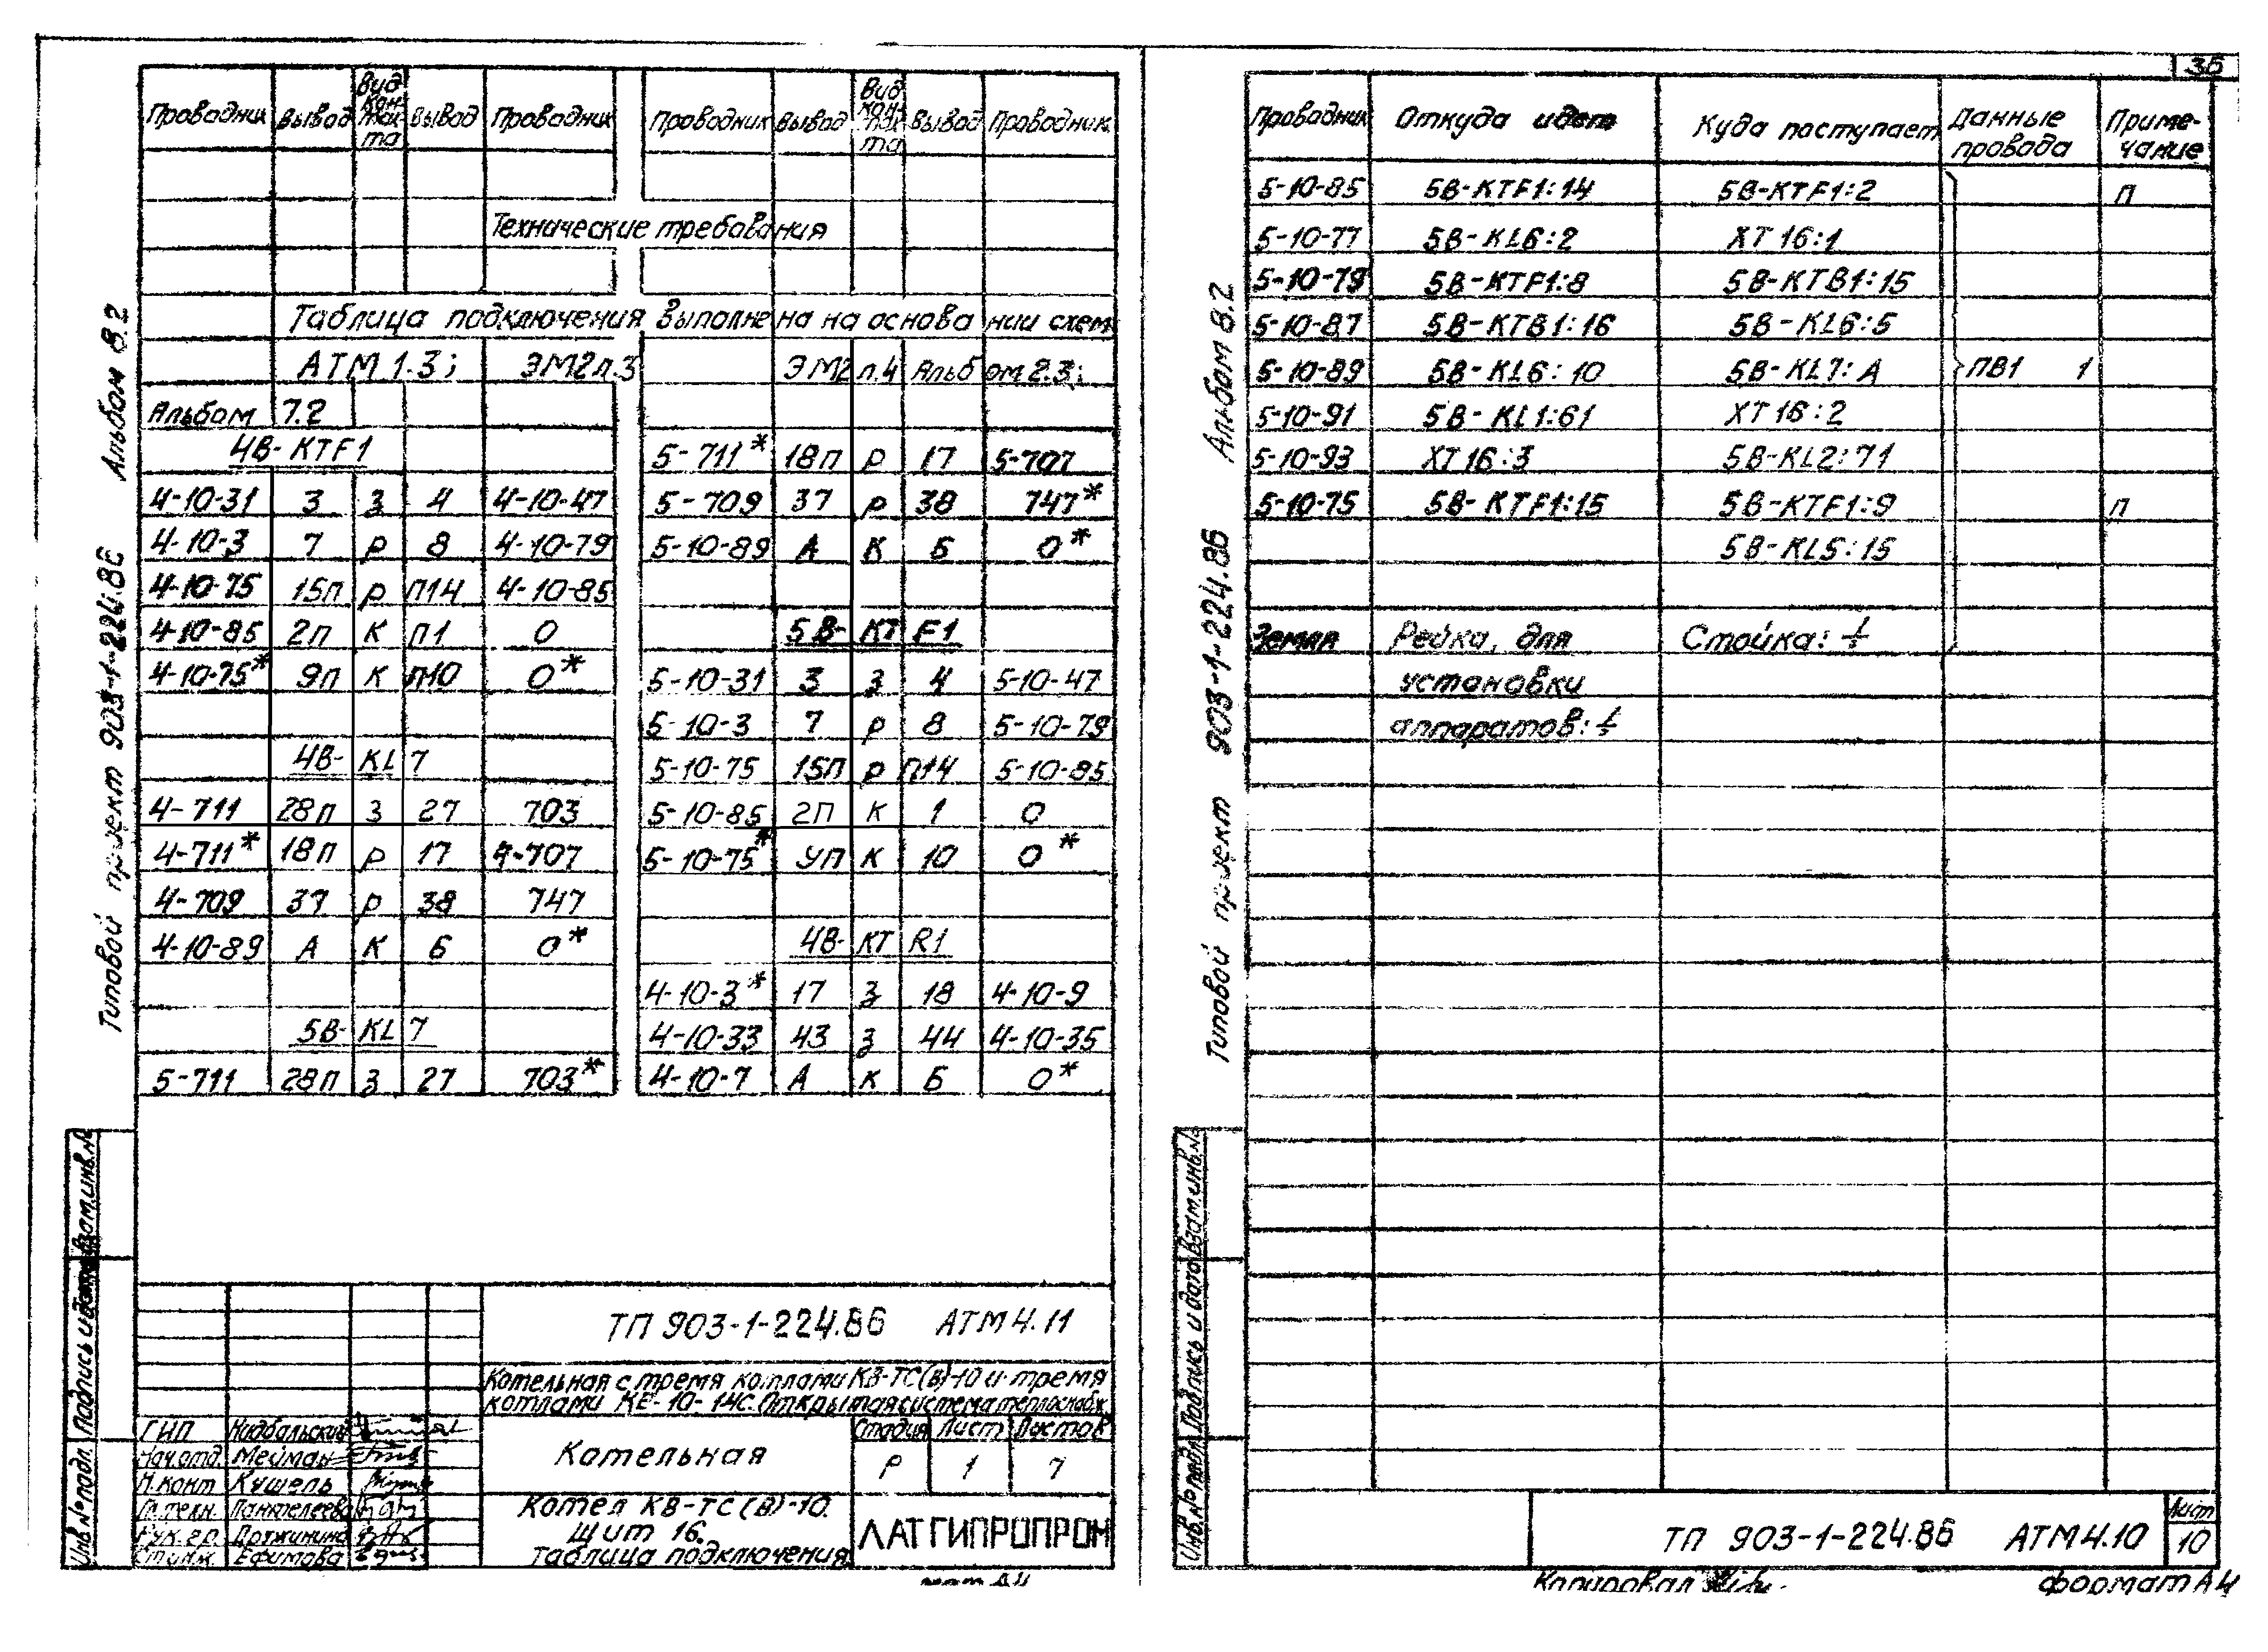 36
Альбом 8.2
Типовой проект 903-1-224.86
Проводник Вывод Вид контакта Вывод Проводник
Технические требования
Таблица подключения выполнена на основании схем
АТМ 1.3; ЭМ2 л.3 ЭМ2 л.4 Альбом 2.3;
Альбом 7.2
4В-KTF1
4-10-31 3 З 4 4-10-47
4-10-3 7 Р 8 4-10-79
4-10-75 15П Р П14 4-10-85
4-10-85 2П К П1 0
4-10-75* 9П К П10 0*
4В-KL7
4-711 28П З 27 703
4-711* 18П Р 17 4-707
4-709 37 Р 38 747
4-10-89 А К Б 0*
5В-KL7
5-711 28П З 27 703*
Проводник Вывод Вид контакта Вывод Проводник
5-711* 18П Р 17 5-707
5-709 37 Р 38 747*
5-10-89 А К Б 0*
5В-KTF1
5-10-31 3 З 4 5-10-47
5-10-3 7 Р 8 5-10-79
5-10-75 15П Р П14 5-10-85
5-10-85 2П К 1 0
5-10-75* УП К 10 0*
4В-KTR1
4-10-3* 17 З 18 4-10-9
4-10-33 43 З 44 4-10-35
4-10-7 А К Б 0*
Взам.инв.№
Подпись и дата
Инв.№подл.
ТП 903-1-224.86 АТМ 4.11
Котельная с тремя котлами КВ-ТС(В)-10 и тремя
котлами КЕ-10-14С. Открытая система теплоснабж.
ГИП
Нач.отд. Мейман
Н.конт Кушель
Гл.техн. Пантелеева
Рук.гр. Дружинина
Ст.инж. Ефимова
Котельная
Стадия Лист Листов
Р 1 7
Котел КВ-ТС(В)-10.
Щит 16.
Таблица подключения
ЛАТГИПРОПРОМ
Альбом 8.2
Типовой проект 903-1-224.86
Проводник Откуда идет Куда поступает Данные провода Примечание
5-10-85 5В-KTF1:14 5В-KTF1:2 П
5-10-77 5В-KL6:2 XT16:1
5-10-79 5В-KTF1:8 5В-KTB1:15
5-10-87 5В-KTB1:16 5В-KL6:5
5-10-89 5В-KL6:10 5В-KL7:А ПВ1 1
5-10-91 5В-KL1:61 XT16:2
5-10-93 XT16:3 5В-KL2:71
5-10-75 5В-KTF1:15 5В-KTF1:9 П
5В-KL5:15
Земля Рейка, для Стойка: ⏚
установки
аппаратов: ⏚
Взам.инв.№
Подпись и дата
Инв.№подл.
ТП 903-1-224.86 АТМ 4.10
Лист
10
Копировал
формат А4